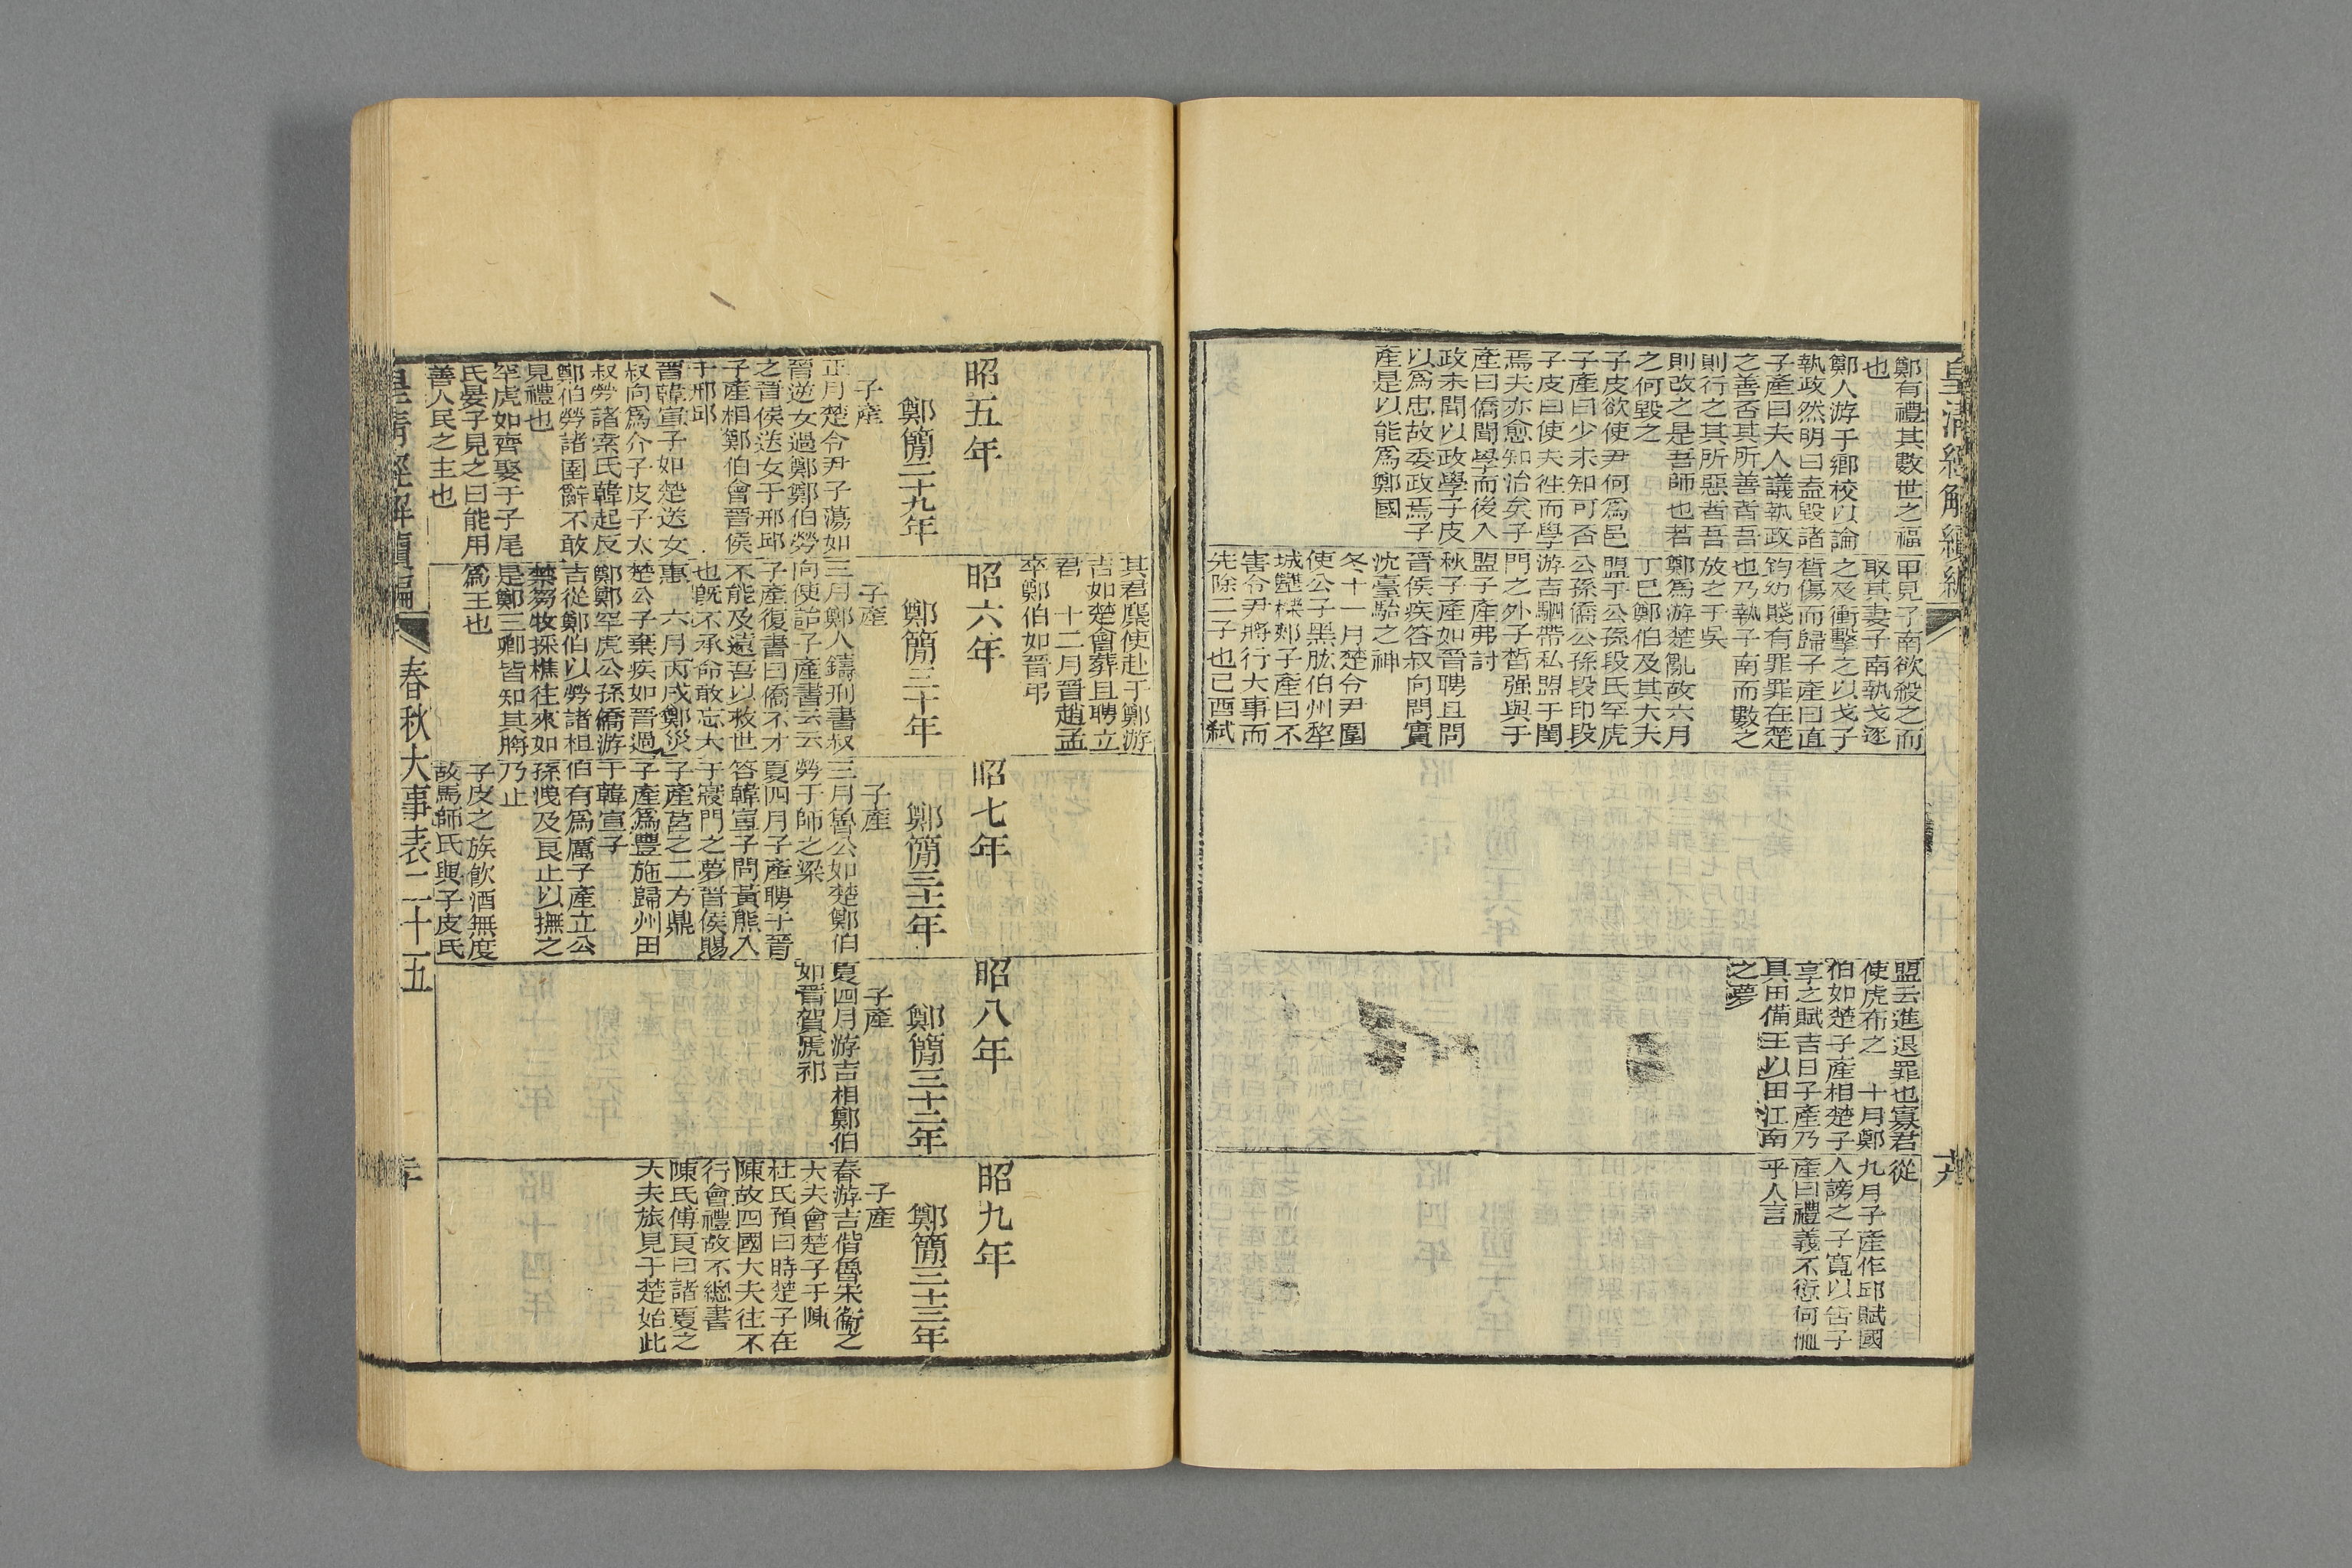 鄭有禮其數世之福
也
鄭人游于鄉校以論
執政然明曰盍毀諸
子產曰夫人議執政
之善否其所善者吾
則行之其所惡者吾
則改之是吾師也若
之何毀之
子皮欲使尹何爲邑
子產曰少未知可否
子皮曰使夫往而學
焉夫亦愈知治矣子
產曰僑聞學而後入
政未聞以政學子皮
以爲忠故委政焉子
產是以能爲鄭國
甲見子南欲殺之而
取其妻子南執戈逐
之及衝擊之以戈子
晳傷而歸子產曰直
鈞幼賤有罪罪在楚
也乃執子南而數之
放之于吳
鄭爲游楚亂故六月
丁巳鄭伯及其大夫
盟于公孫段氏罕虎
公孫僑公孫段印段
游吉駟帶私盟于閨
門之外子晳强與于
盟子產弗討
秋子產如晉聘且問
晉侯疾答叔向問實
沈臺駘之神
冬十一月楚令尹圍
使公子黑肱伯州犂
城犫櫟郟子產曰不
害令尹將行大事而
先除二子也己酉弑
盟云進退罪也寡君
使虎布之 十月鄭
伯如楚子產相楚子
享之賦吉日子產乃
具田備王以田江南
之夢
從
九月子產作邱賦國
人謗之子寬以告子
產曰禮義不愆何恤
乎人言
其君麇使赴于鄭游
吉如楚會葬且聘立
君 十二月晉趙孟
卒鄭伯如晉弔
昭五年
鄭簡二十九年
子產
正月楚令尹子蕩如
晉逆女過鄭鄭伯勞
之晉侯送女于邢邱
子產相鄭伯會晉侯
于邢邱
晉韓宣子如楚送女
叔向爲介子皮子太
叔勞諸索氏韓起反
鄭伯勞諸圉辭不敢
見禮也
罕虎如齊娶于子尾
氏晏子見之曰能用
善人民之主也
昭六年
鄭簡三十年
子產
三月鄭人鑄刑書叔
向使詒子產書云云
子產復書曰僑不才
不能及遠吾以救世
也既不承命敢忘大
惠 六月丙戌鄭災
楚公子棄疾如晉過
鄭鄭罕虎公孫僑游
吉從鄭伯以勞諸柤
禁芻牧採樵往來如
是鄭三卿皆知其將
爲王也
昭七年
鄭簡三十一年
子產
三月魯公如楚鄭伯
勞于師之梁
夏四月子產聘于晉
答韓宣子問黃熊入
于寢門之夢晉侯賜
子產莒之二方鼎
子產爲豐施歸州田
于韓宣子
伯有爲厲子產立公
孫洩及良止以撫之
乃止
子皮之族飲酒無度
故馬師氏與子皮氏
昭八年
鄭簡三十二年
子產
夏四月游吉相鄭伯
如晉賀虒祁
昭九年
鄭簡三十三年
子產
春游吉偕魯宋衞之
大夫會楚子于陳
杜氏預曰時楚子在
陳故四國大夫往不
行會禮故不總書
陳氏傅良曰諸夏之
大夫旅見于楚始此
春秋大事表二十五